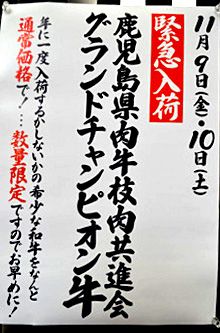 11月9日(金)・10日(土)
緊急入荷
鹿児島県内牛枝肉共進会
グランドチャンピオン牛
年に一度入荷するかしないかの希少な和牛をなんと
通常価格で!…数量限定ですのでお早めに!